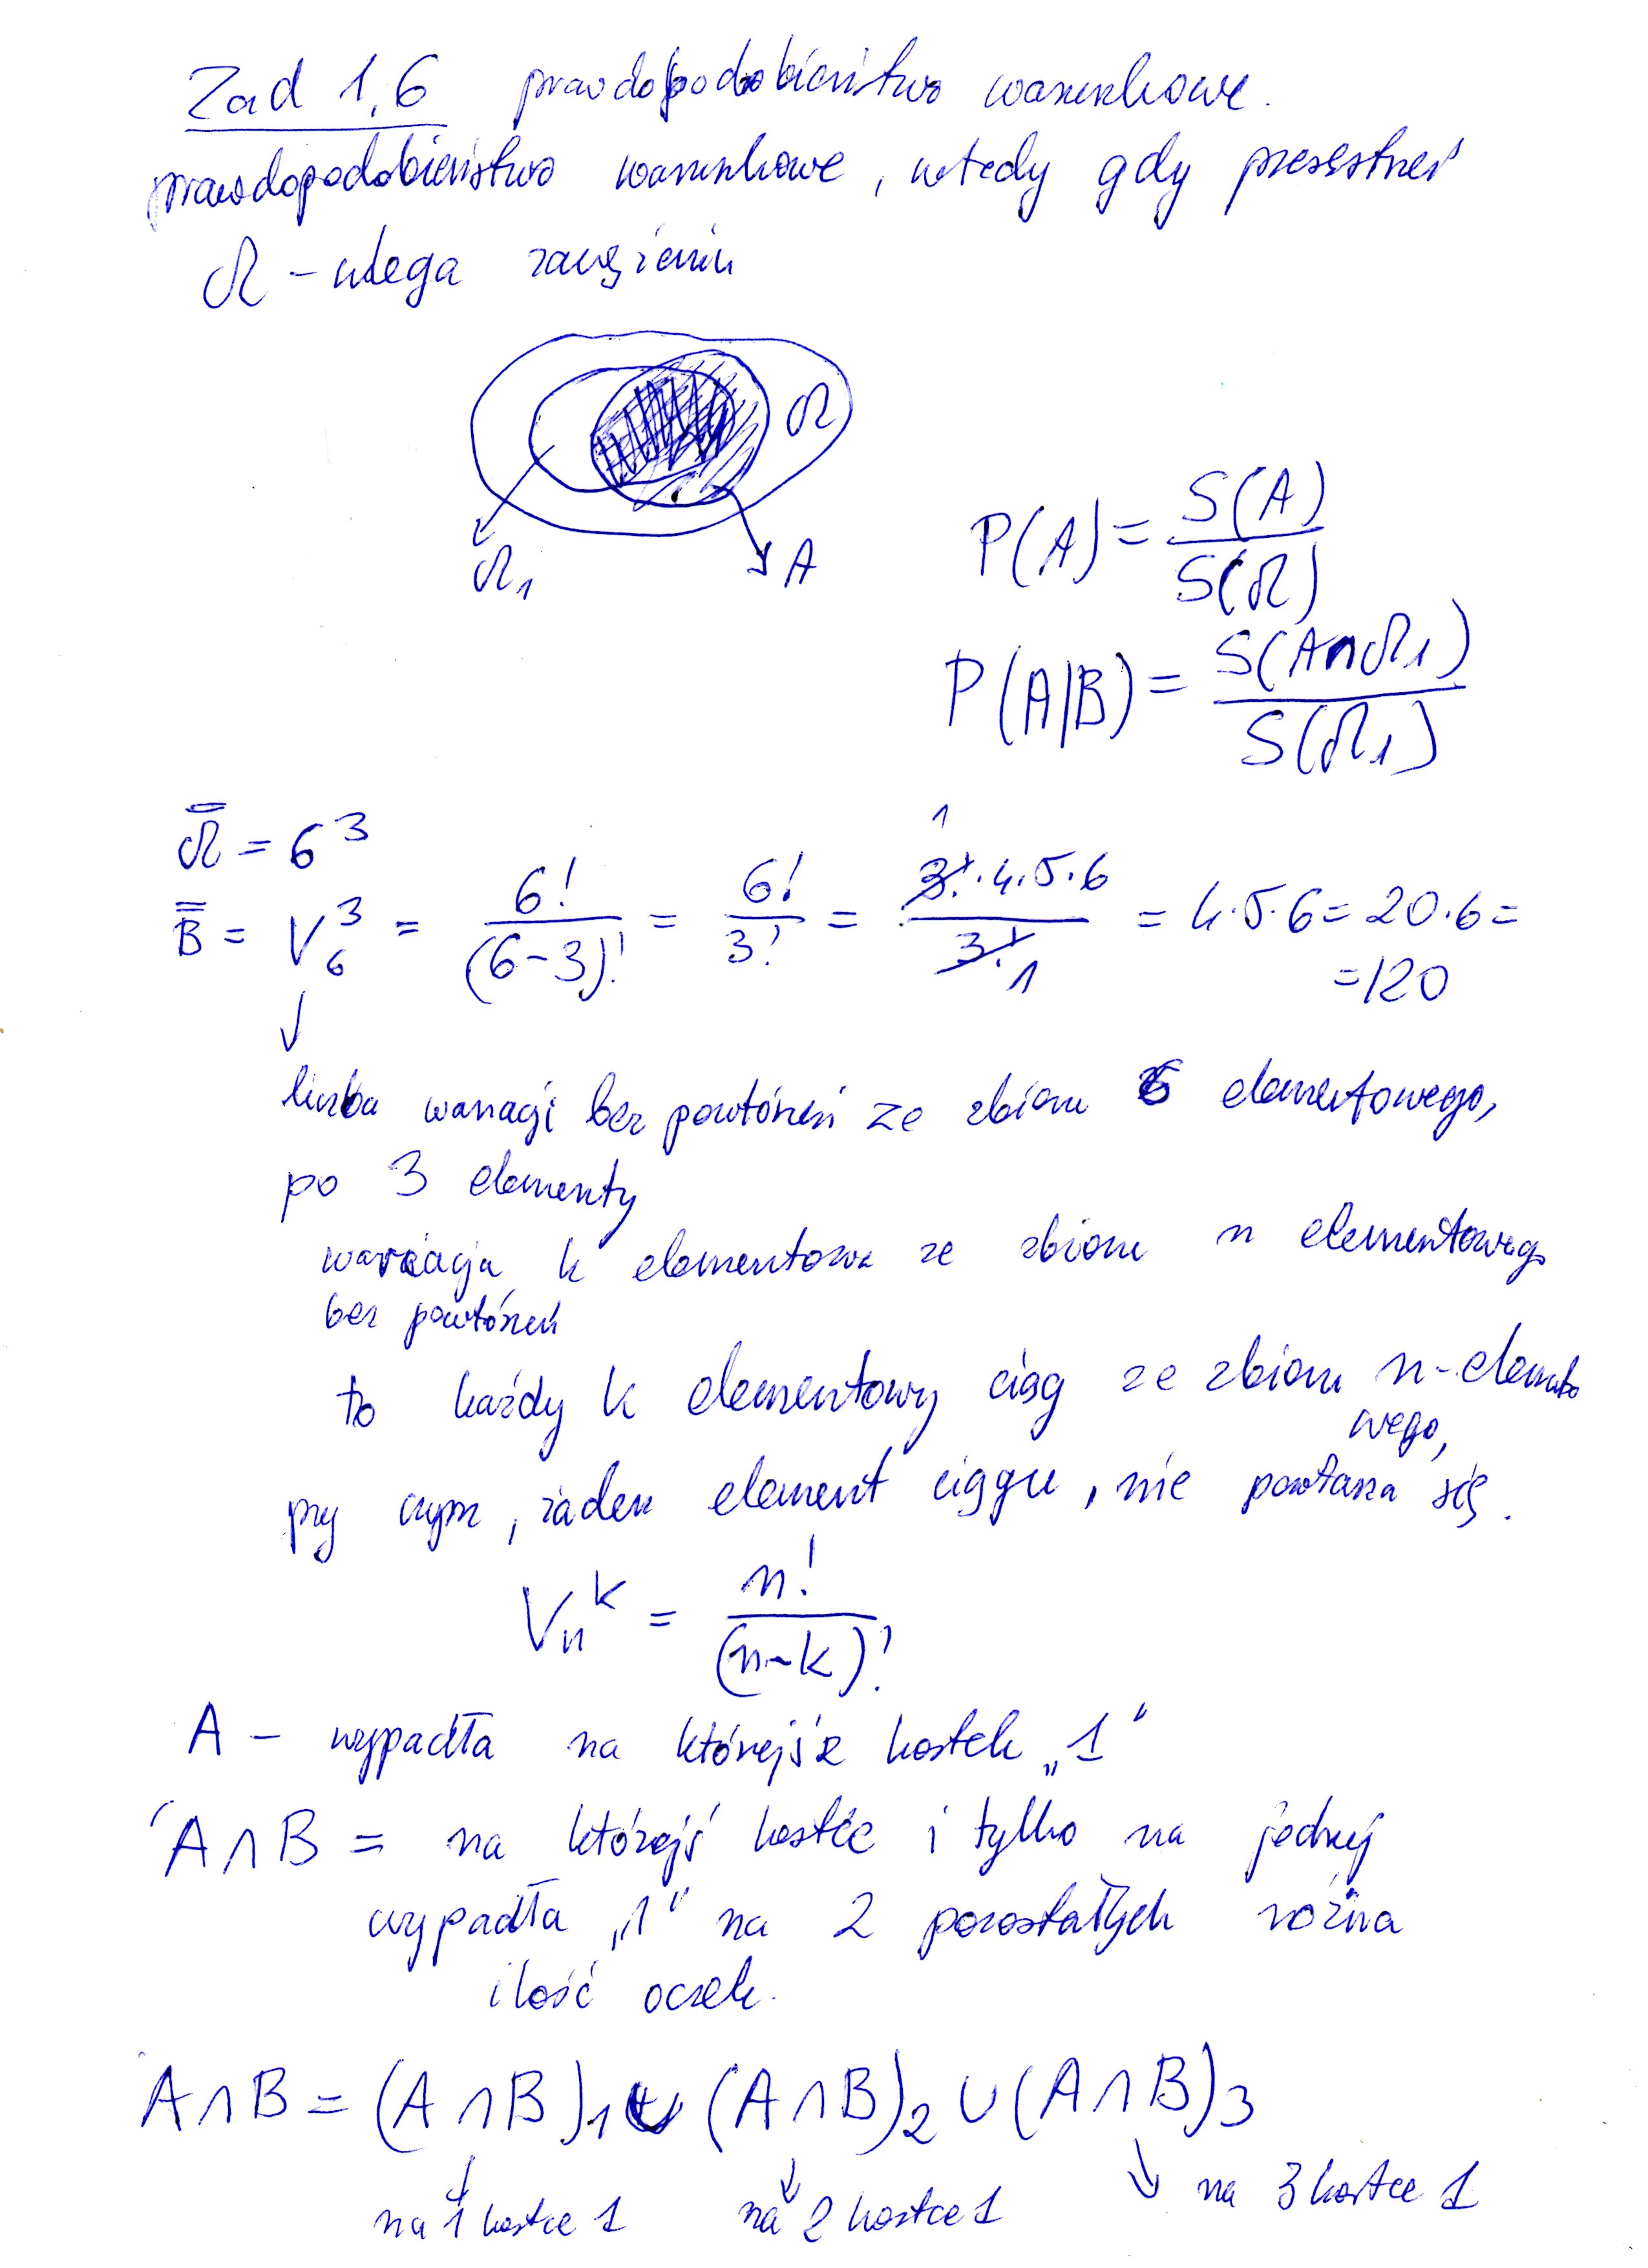 Zad 1,6 prawdopodobieństwo warunkowe.
prawdopodobieństwo warunkowe, wtedy gdy przestrzeń
Ω - ulega zawężeniu
Ω
Ω₁
A
P(A) = S(A) / S(Ω)
P(A|B) = S(A∩Ω₁) / S(Ω₁)
Ω̿ = 6³
B̿ = V₆³ = 6! / (6-3)! = 6! / 3! = 3!·4·5·6 / 3! = 4·5·6 = 20·6 =
= 120
liczba wariacji bez powtórzeń ze zbioru 6 elementowego,
po 3 elementy
wariacja k elementowa ze zbioru n elementowego
bez powtórzeń
to każdy k elementowy ciąg ze zbioru n-elemento
wego,
przy czym, żaden element ciągu, nie powtarza się.
Vₙᵏ = n! / (n-k)!
A - wypadła na którejś z kostek „1"
A∩B = na którejś kostce i tylko na jednej
wypadła „1" na 2 pozostałych różna
ilość oczek.
A∩B = (A∩B)₁ ∪ (A∩B)₂ ∪ (A∩B)₃
na 1 kostce 1 na 2 kostce 1 na 3 kostce 1